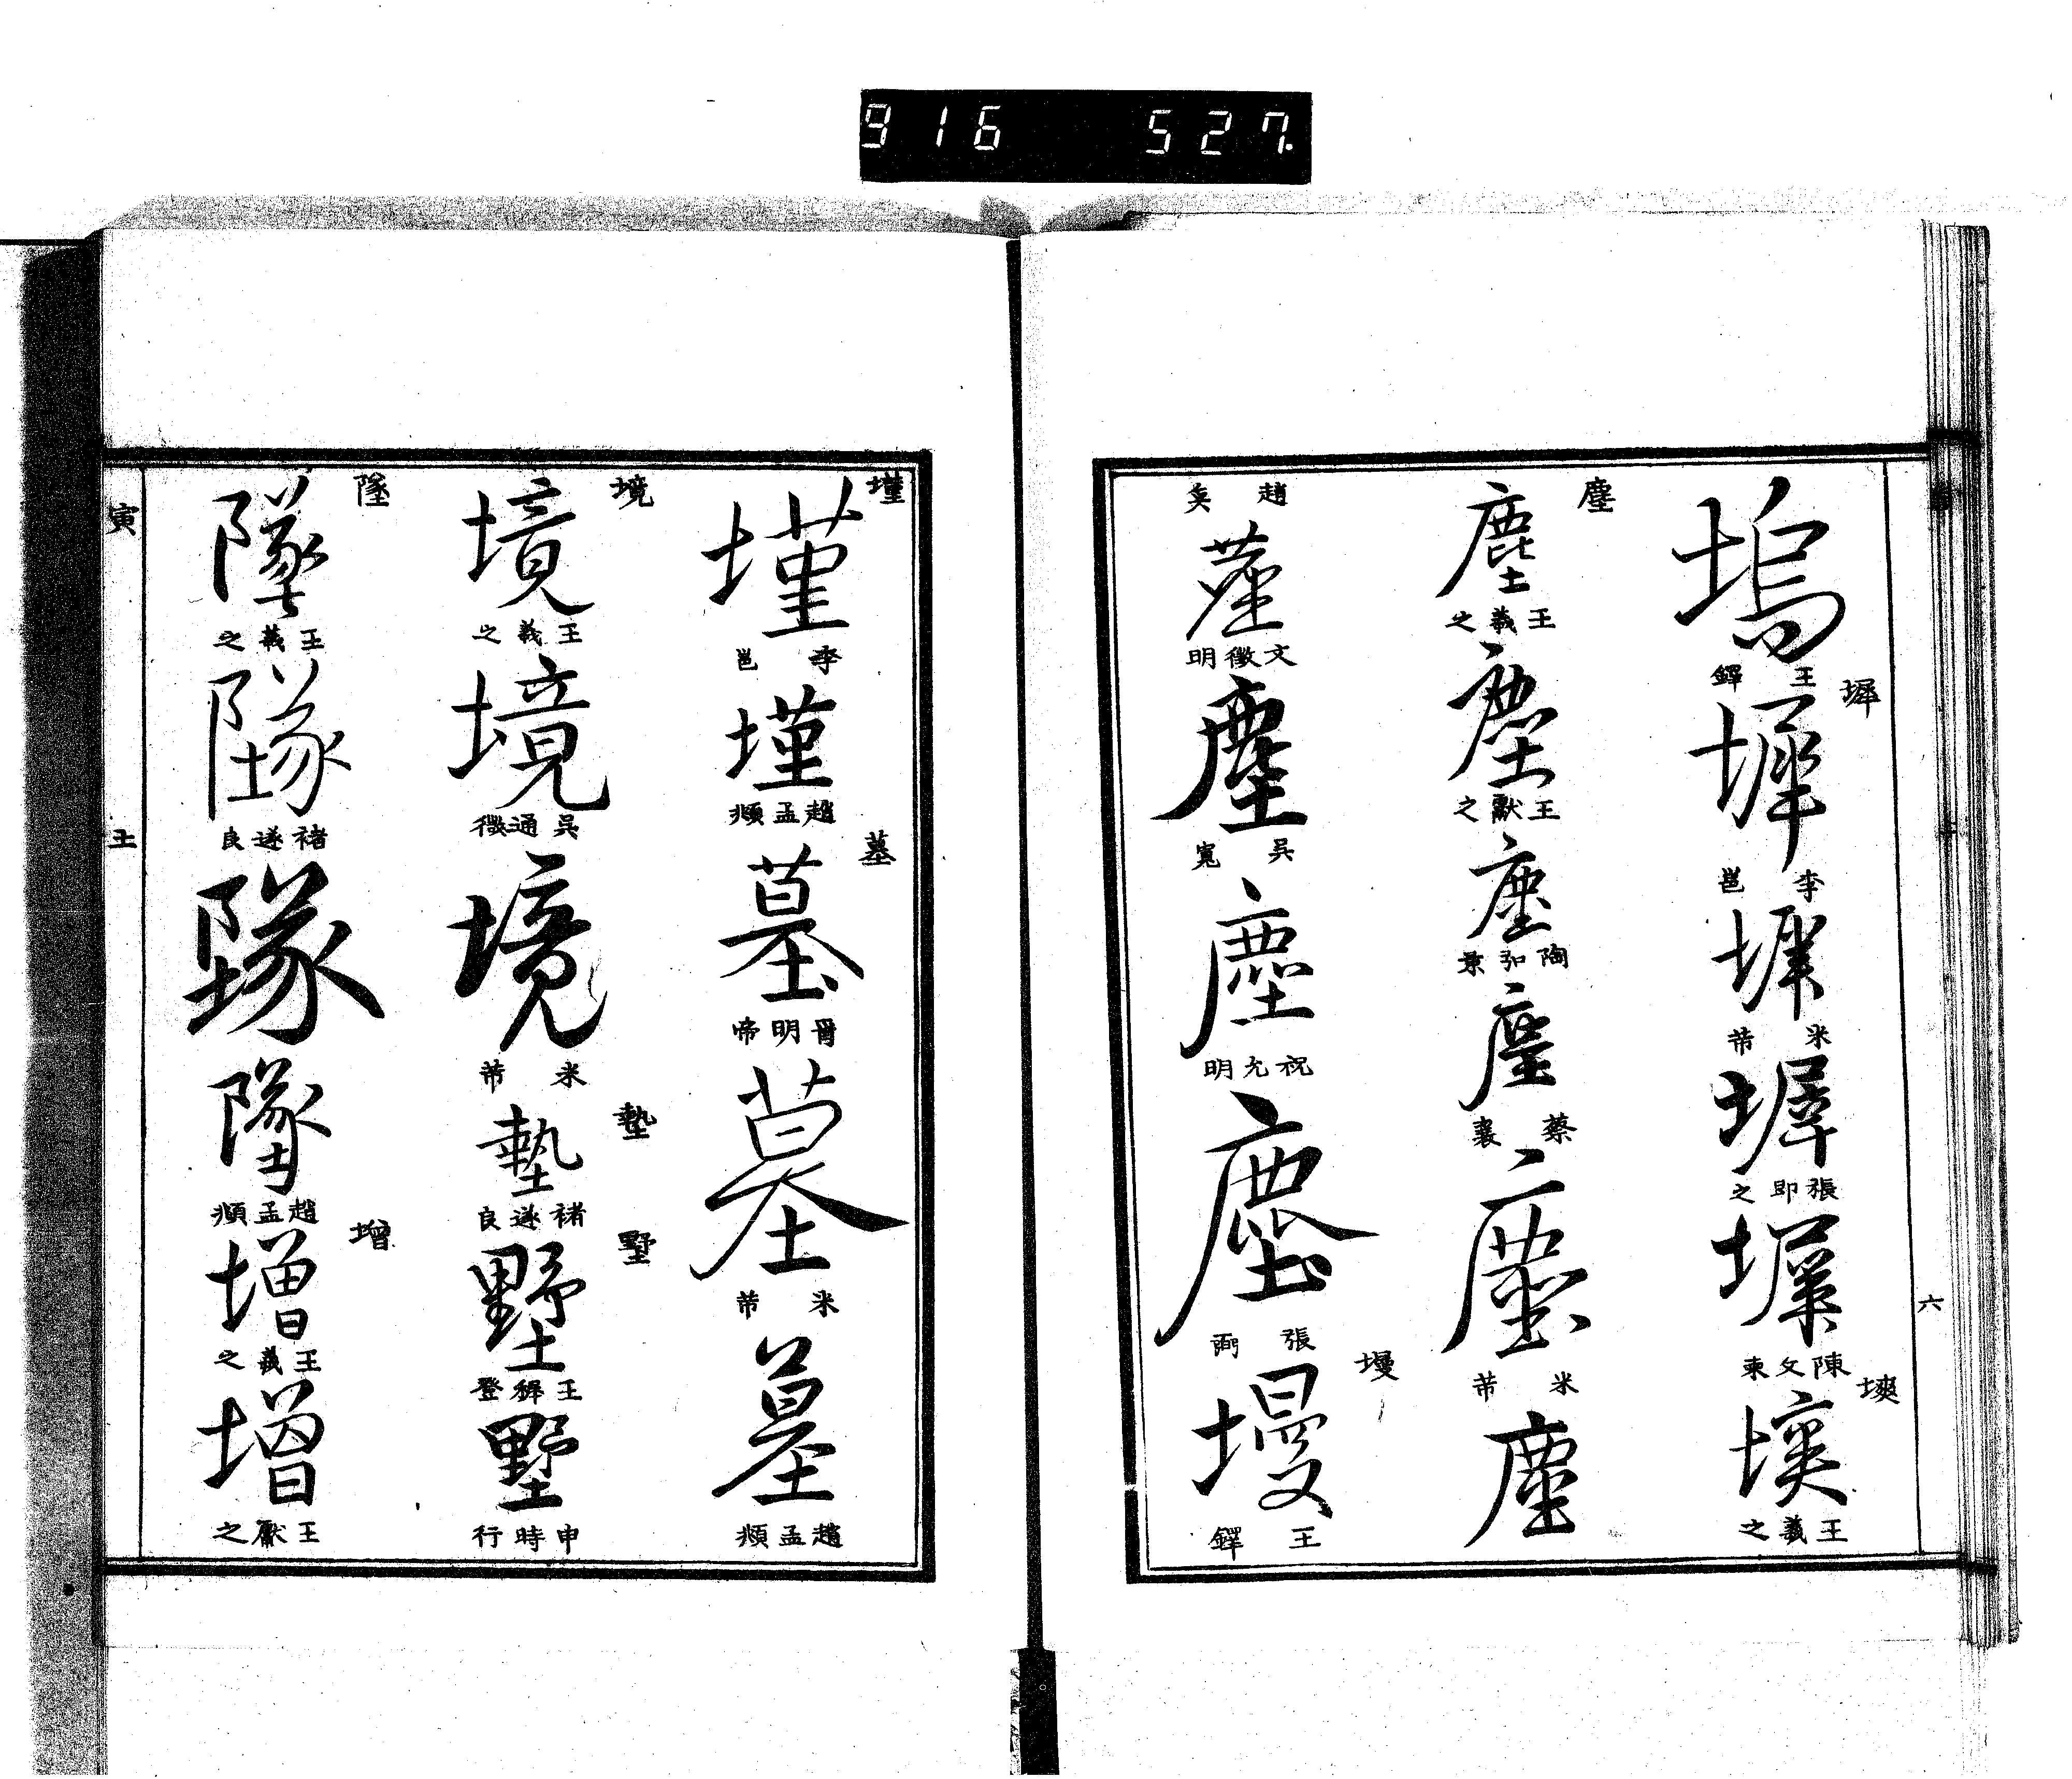 916 527.
塢
王鐸
墀
墀
李邕
墀
米芾
墀
張即之
墀
陳文東
堧
堧
王羲之
塵
塵
王羲之
塵
王獻之
塵
陶弘景
塵
蔡襄
塵
米芾
塵
趙奐
塵
文徵明
塵
吳寬
塵
祝允明
塵
張弼
墁
墁
王鐸
六
墐
墐
李邕
墐
趙孟頫
墓
墓
晉明帝
墓
米芾
墓
趙孟頫
境
境
王羲之
境
吳通微
境
米芾
墊
墊
褚遂良
墅
墅
王穉登
墅
申時行
墜
墜
王羲之
墜
褚遂良
墜
墜
趙孟頫
增
增
王羲之
增
王獻之
寅
土